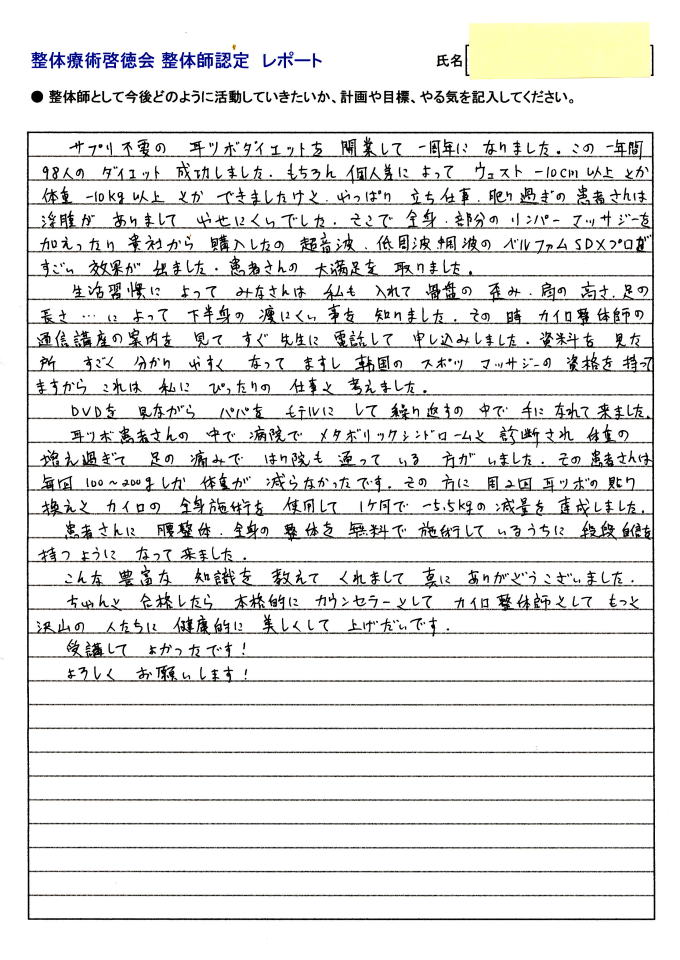 整体療術啓徳会 整体師認定 レポート
氏名
● 整体師として今後どのように活動していきたいか、計画や目標、やる気を記入してください。
サプリ不要の 耳ツボダイエットを 開業して 一周年に なりました。この 一年間
98人の ダイエット 成功しました. もちろん 個人差に よって ウェスト -10cm 以上 とか
体重 -10kg 以上 とか できましたけど. やっぱり 立ち仕事. 肥り過ぎの 患者さんは
浮腫が ありまして やせにくいでした. そこで 全身. 部分の リンパー マッサジーを
加えったり 貴社から 購入したの 超音波. 低周波 細波の ベルファム SDXプロが
すごい 効果が 出ました. 患者さんの 大満足を 取りました。
生活習慣に よって みなさんは 私も 入れて 骨盤の 歪み. 肩の 高さ. 足の
長さ … に よって 下半身の 痩にくい 事を 知りました. その 時 カイロ整体師の
通信講座の案内を 見て すぐ 先生に 電話して 申し込みしました. 資料を 見た
所 すごく 分かり やすく なって ますし 韓国の スポツ マッサジーの 資格を 持って
ますから これは 私に ぴったりの 仕事と 考えました。
DVDを 見ながら パパを モデルに して 繰り返すの 中で 手に なれて 来ました.
耳ツボ 患者さんの 中で 病院で メタボリックシンドロームと 診断され 体重の
増え過ぎて 足の 痛みで はり院も 通って いる 方が いました. その 患者さんは
毎回 100～200gしか 体重が 減らなかったです. その 方に 周2回 耳ツボの 貼り
換えと カイロの 全身施術を 使用して 1ケ月で -5.5kgの 減量を 達成しました.
患者さんに 腰整体. 全身の 整体を 無料で 施術して いるうちに 段段 自信を
持つ ように なって 来ました.
こんな 豊富な 知識を 教えて くれまして 真に ありがどうございました.
ちゃんと 合格したら 本格的に カウンセラーとして カイロ整体師として もっと
沢山の 人たちに 健康的に 美しくして 上げだいです.
受講して よかったです!
よろしく お願いします!